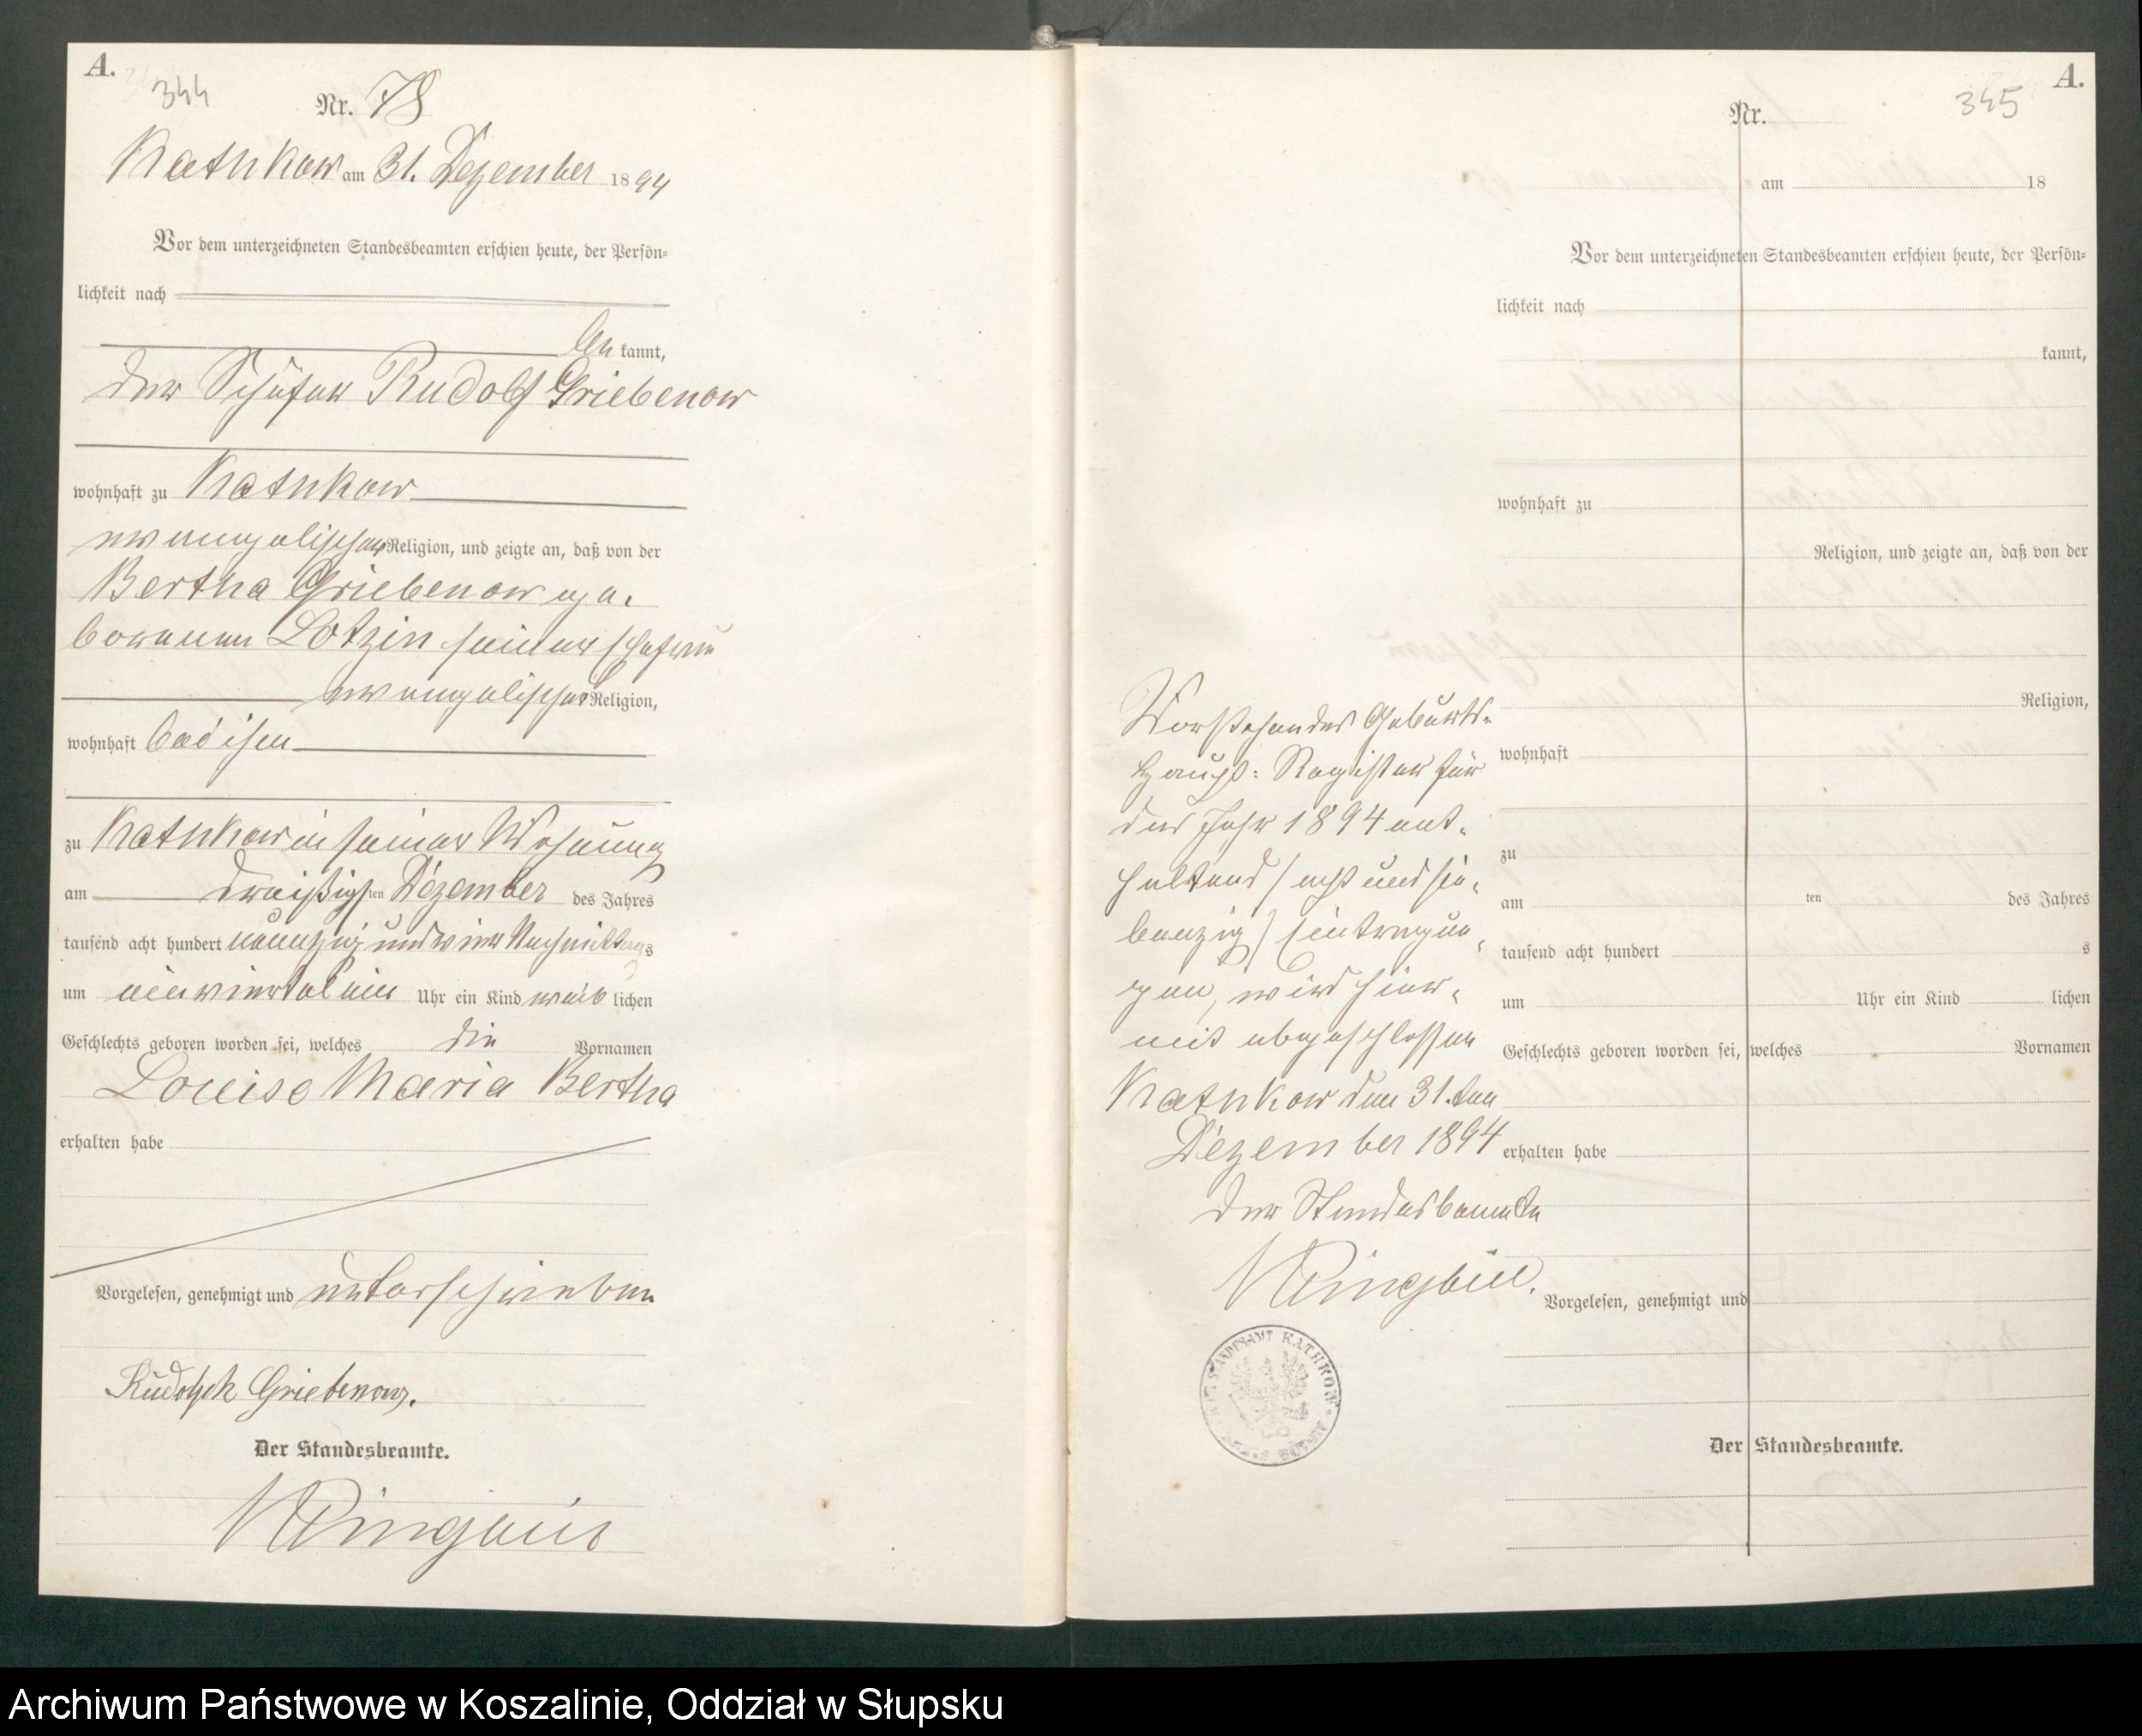 A.
344
Nr. 78
Kathkow am 31. Dezember 1894
Vor dem unterzeichneten Standesbeamten erschien heute, der Persön=
lichkeit nach
be kannt,
der Schäfer Rudolf Griebenow
wohnhaft zu Kathkow
evangelischer Religion, und zeigte an, daß von der
Bertha Griebenow ge=
borenen Lotzin seiner Ehefrau
evangelischer Religion,
wohnhaft bei ihm
zu Kathkow in seiner Wohnung
am dreißigsten Dezember des Jahres
tausend acht hundert neunzig und vier Nachmittags
um ein viertel ein Uhr ein Kind weib lichen
Geschlechts geboren worden sei, welches die Vornamen
Louise Maria Bertha
erhalten habe
Vorgelesen, genehmigt und unterschrieben
Rudolph Griebenow.
Der Standesbeamte.
A.
345
Nr.
am 18
Vor dem unterzeichneten Standesbeamten erschien heute, der Persön=
lichkeit nach
kannt,
wohnhaft zu
Religion, und zeigte an, daß von der
Religion,
wohnhaft
zu
am ten des Jahres
tausend acht hundert s
um Uhr ein Kind lichen
Geschlechts geboren worden sei, welches Vornamen
erhalten habe
Vorgelesen, genehmigt und
Der Standesbeamte.
Vorstehendes Geburts=
Haupt: Register für
das Jahr 1894 ent=
haltend (acht und sie=
benzig) Eintragun=
gen, wird hier=
mit abgeschlossen
Kathkow den 31. ten
Dezember 1894
Der Standesbeamte
STANDESAMT KATHKOW
Archiwum Państwowe w Koszalinie, Oddział w Słupsku